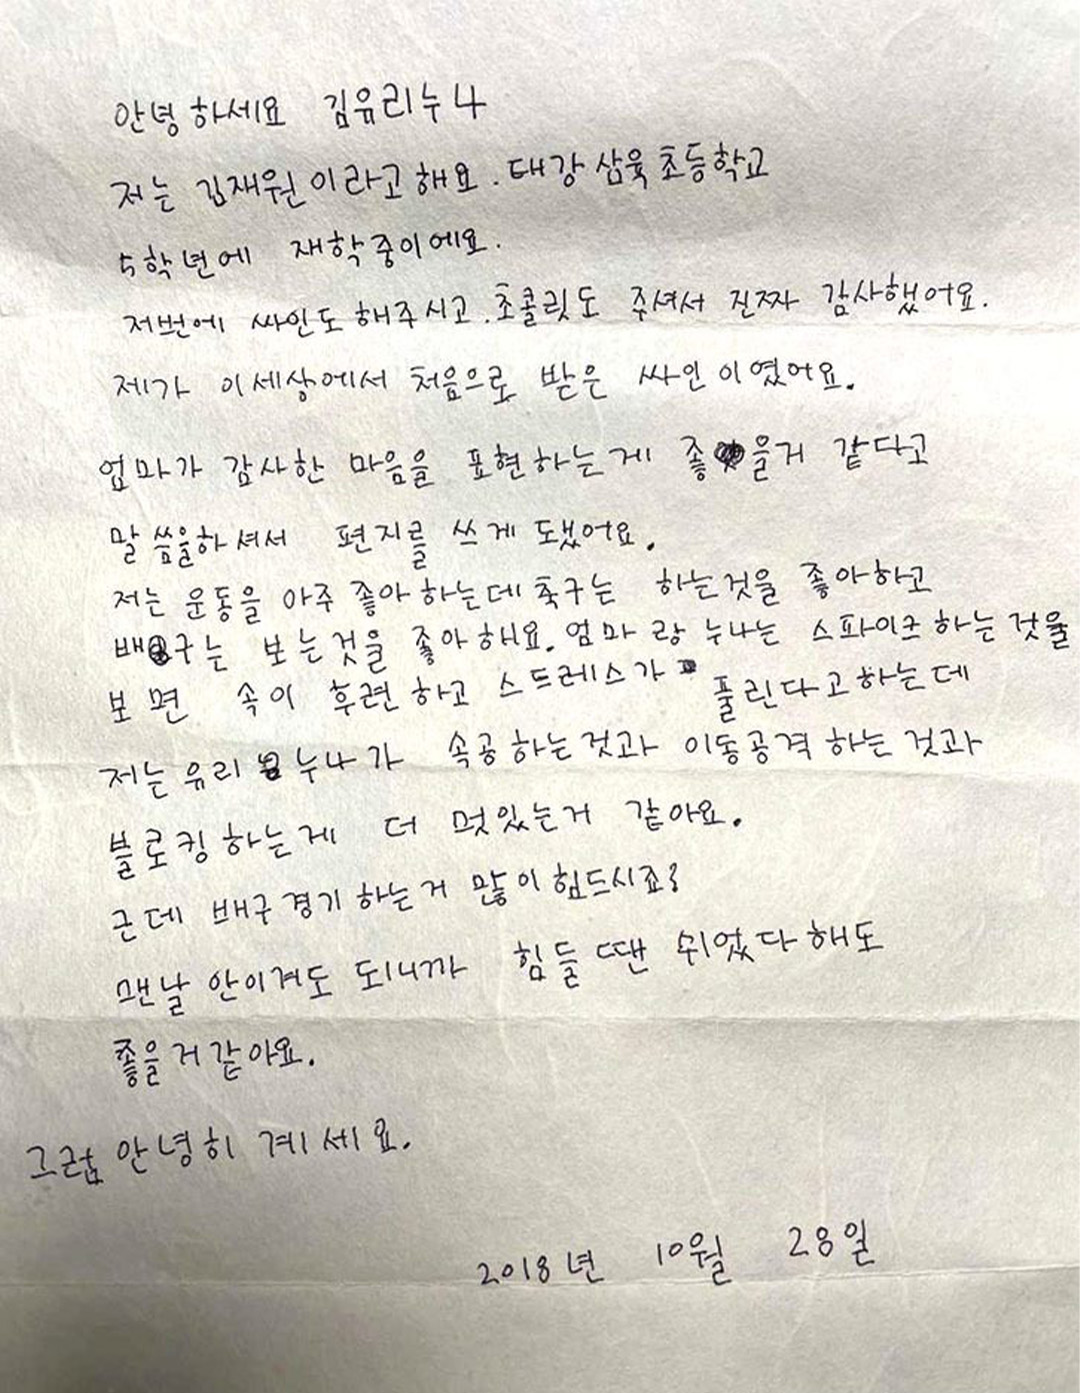 안녕하세요 김유리누나
저는 김재원이라고해요. 태강삼육초등학교
5학년에 재학중이에요.
저번에 싸인도해주시고.초콜릿도 주셔서 진짜 감사했어요.
제가 이세상에서 처음으로 받은 싸인이였어요.
엄마가 감사한 마음을 표현하는게 좋을거 같다고
말씀을하셔서 편지를 쓰게 됐어요.
저는 운동을 아주 좋아하는데 축구는 하는것을 좋아하고
배구는 보는것을 좋아해요. 엄마랑 누나는 스파이크하는것을
보면 속이 후련하고 스트레스가 풀린다고하는데
저는유리 누나가 속공하는것과 이동공격하는 것과
블로킹하는게 더 멋있는거 같아요.
근데 배구경기하는거 많이힘드시죠?
맨날 안이겨도 되니까 힘들땐 쉬었다해도
좋을거같아요.
그럼안녕히 계세요.
2018년 10월 28일